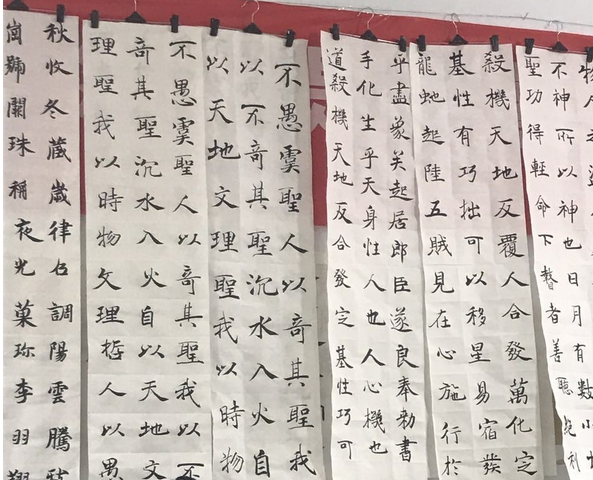 物人之
不神所以神也日月有數
聖功得軽命下瞽者善聽
殺機天地反覆人合發萬化定
基性有巧拙可以移星易宿發
龍虵起陸五賊見在心施行於
乎盡象关起居郎臣遂良奉勅書
手化生乎天身性人也人心機也
道殺機天地反合發定基性巧可
不愚虞聖人以奇其聖我
以不奇其聖沉水入火自
以天地文理聖我以時物
不愚虞聖人以奇其聖我以不
奇其聖沉水入火自以天地文
理聖我以時物文理哲人以愚
秋收冬藏歲律吕調陽雲騰
崗號闕珠稱夜光菓珍李羽翔